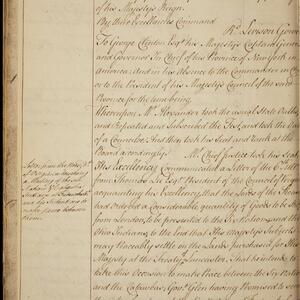 of his Majestys Reign.
By His Excellencys Command
To George Clinton Esqr his Majesty's Captain General
and Governor in Chief of his Province of New York in
America. And in his Absence to the Commander in Chief
or to the President of his Majesty's Council of the said
Province for the time being.
Whereupon Mr Alexander took the usual State Oaths
and Repeated and Subscribed the Test and took the Oath
of a Councellor, And then took his Seat and Rank at the
board accordingly.
Mr Chief Justice took his Seat
His Excellency Communicated a Letter of the 6th
from Thomas Lee Esqr President of the Council of Virginia
acquainting his Excellency, that the Lords of the
had Ordered a Considerable quantity of Goods to be
from London, to be presented to the Six Nations and the
Ohio Indians, to the End that His Majesty's Subjects
may Peaceably settle on the Lands purchased for His
Majesty at the Treaty of Lancaster. That he intends to
take this Occasion to make Peace between the Six Nations
and the Catawbas; Govr Glen having Promised to send
Letter from the
of Virginia
a
Indians
and
make Peace between
them